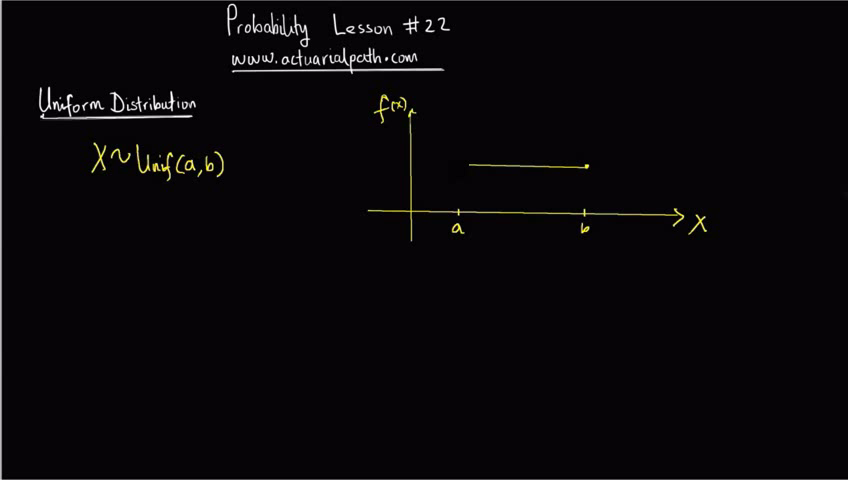 Probability Lesson #22
www.actuarialpath.com
Uniform Distribution
X~Unif(a,b)
f(x)
a
b
X